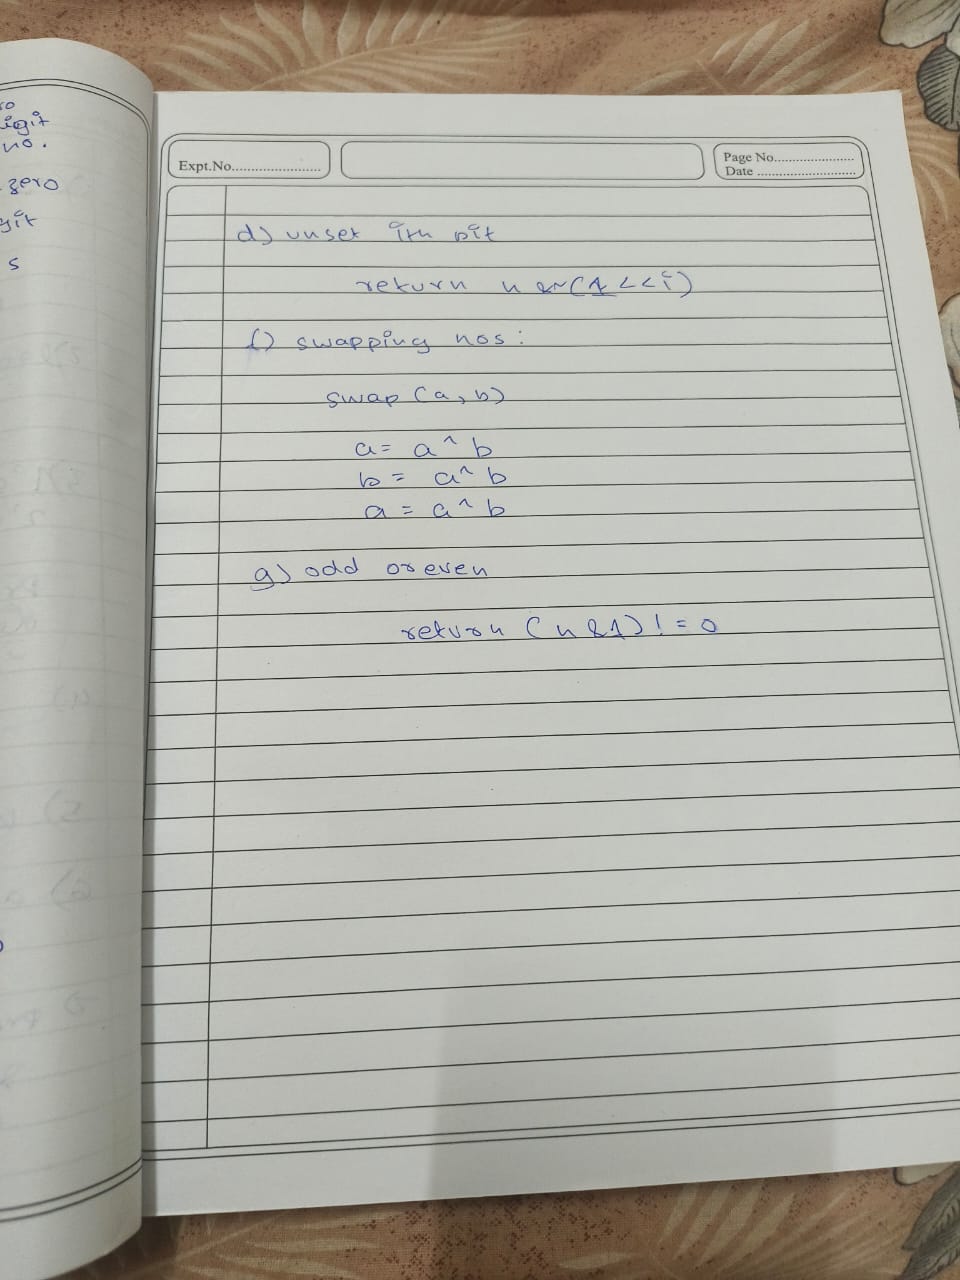 ro
igit
no.
zero
git
s
Expt.No.
Page No.
Date
d) unset ith bit
return n &~(1<<i)
f) swapping nos:
swap (a, b)
a= a^b
b = a^b
a = a^b
g) odd or even
return (n&1)!=0